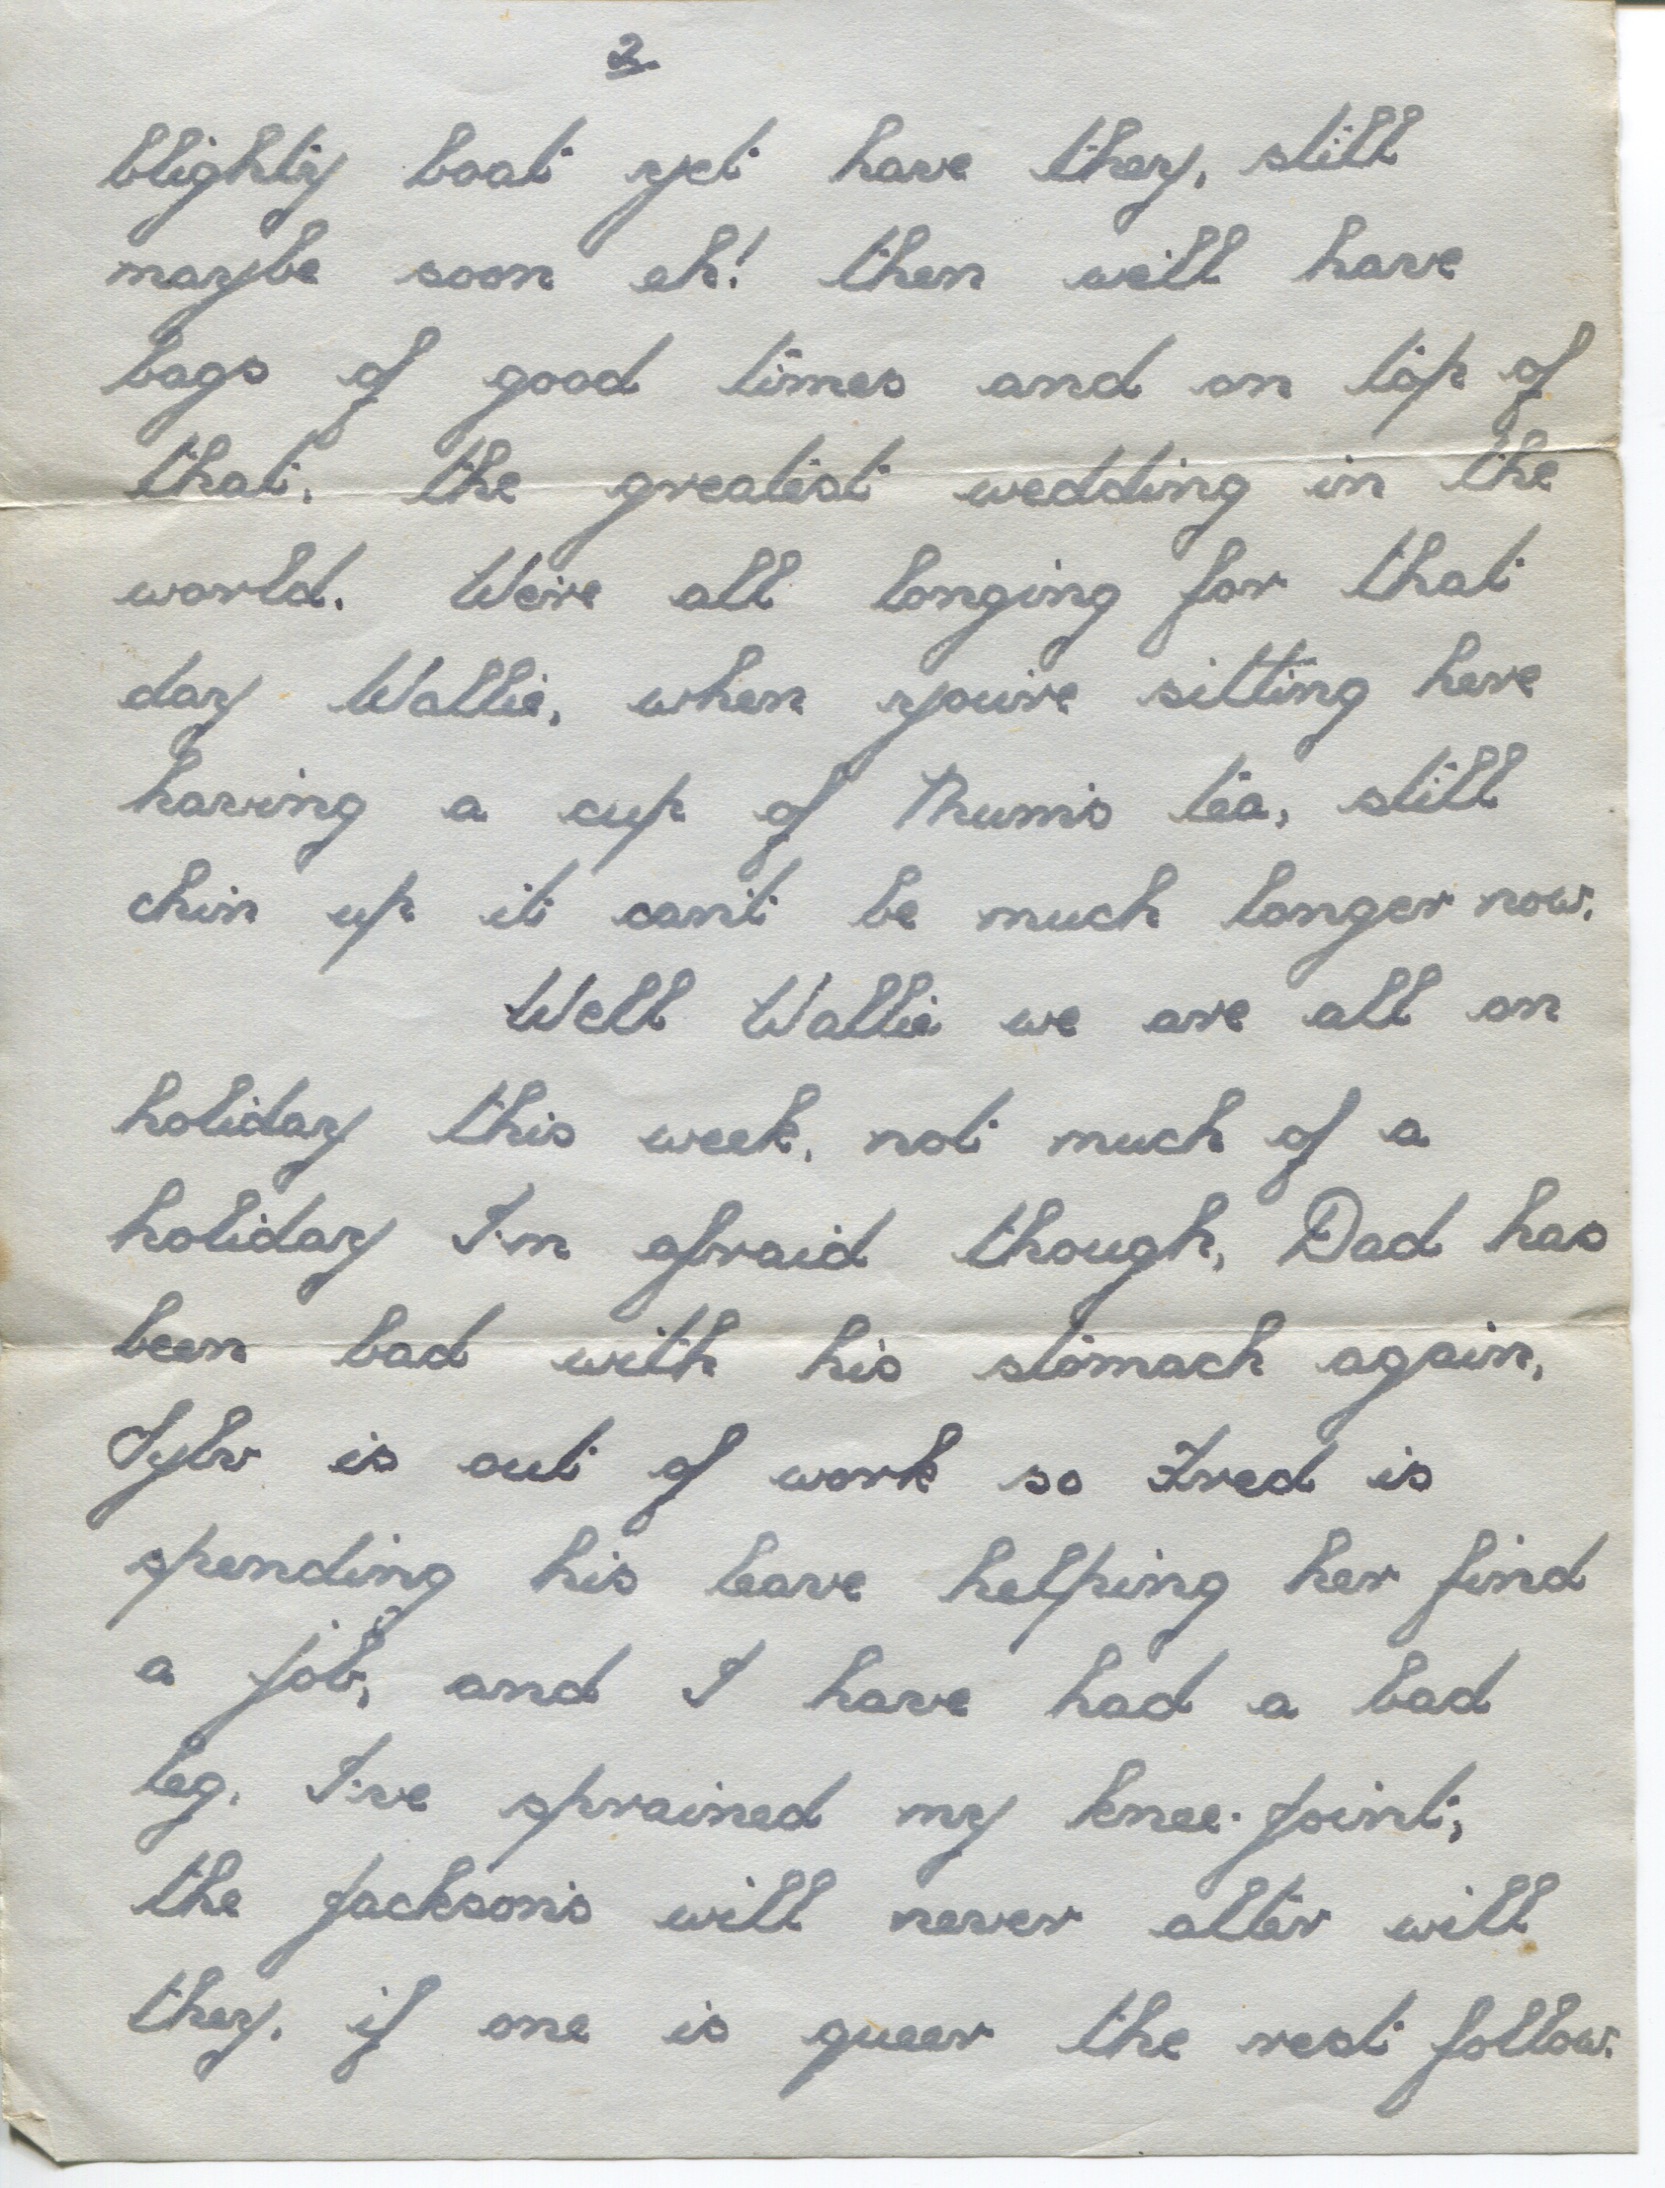 2.
blighty boat yet have they, still
maybe soon eh! then will have
bags of good times and on top of
that, the greatest wedding in the
world. We're all longing for that
day Wallie, when you're sitting here
having a cup of Mum's tea, still
chin up it can't be much longer now.
Well Wallie we are all on
holiday this week, not much of a
holiday I'm afraid though, Dad has
been bad with his stomach again,
is out of work so Fred is
spending his leave helping her find
a job, and I have had a bad
leg. I've sprained my knee-joint,
the Jackson's will never alter will
they, if one is queer the rest follow.